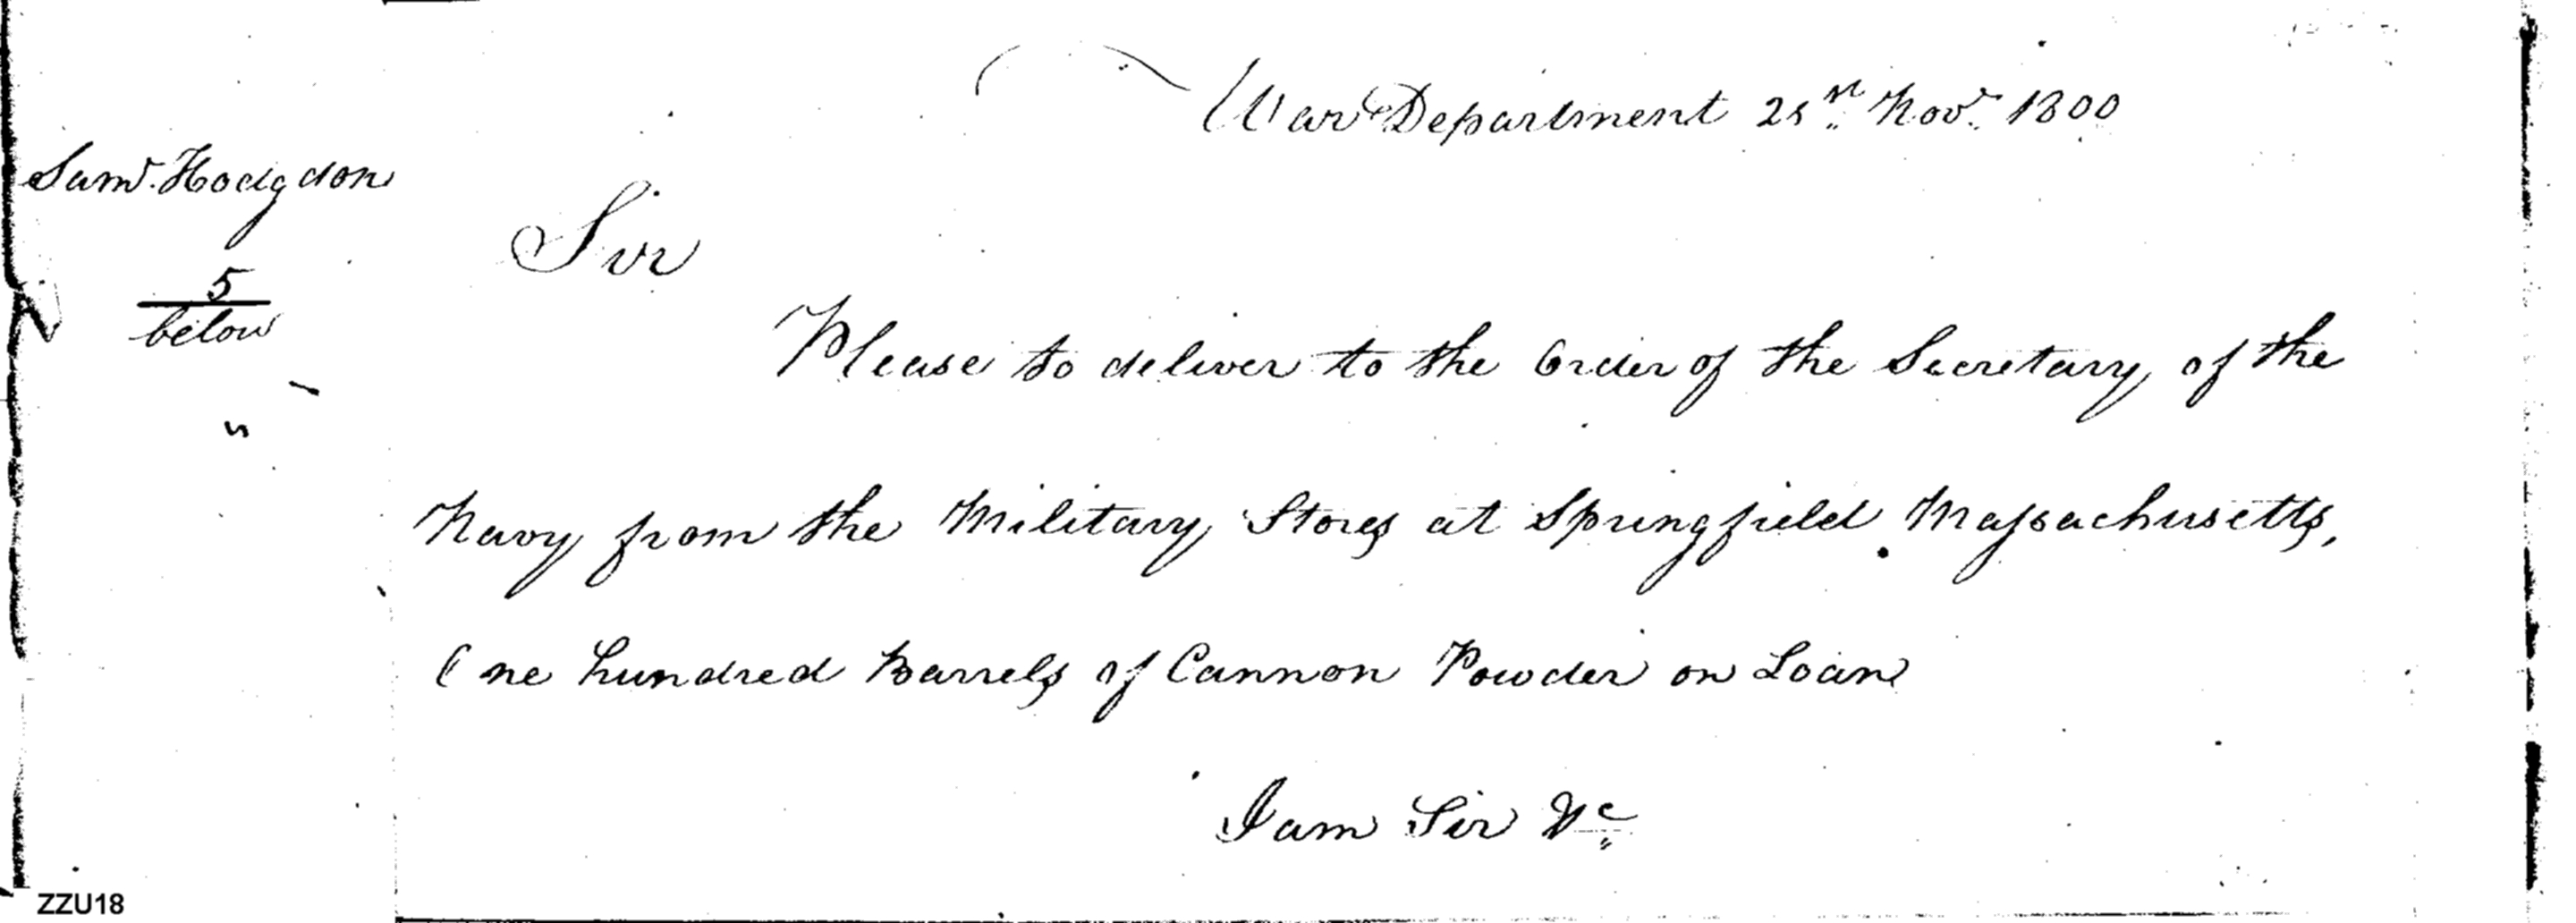 War Department 21st Novr 1800
Saml Hodgdon
5
below
Sir
Please to deliver to the Order of the Secretary of the
Navy from the Military Stores at Springfield Massachusetts,
One hundred Barrels of Cannon Powder on Loan
I am Sir &c
ZZU18